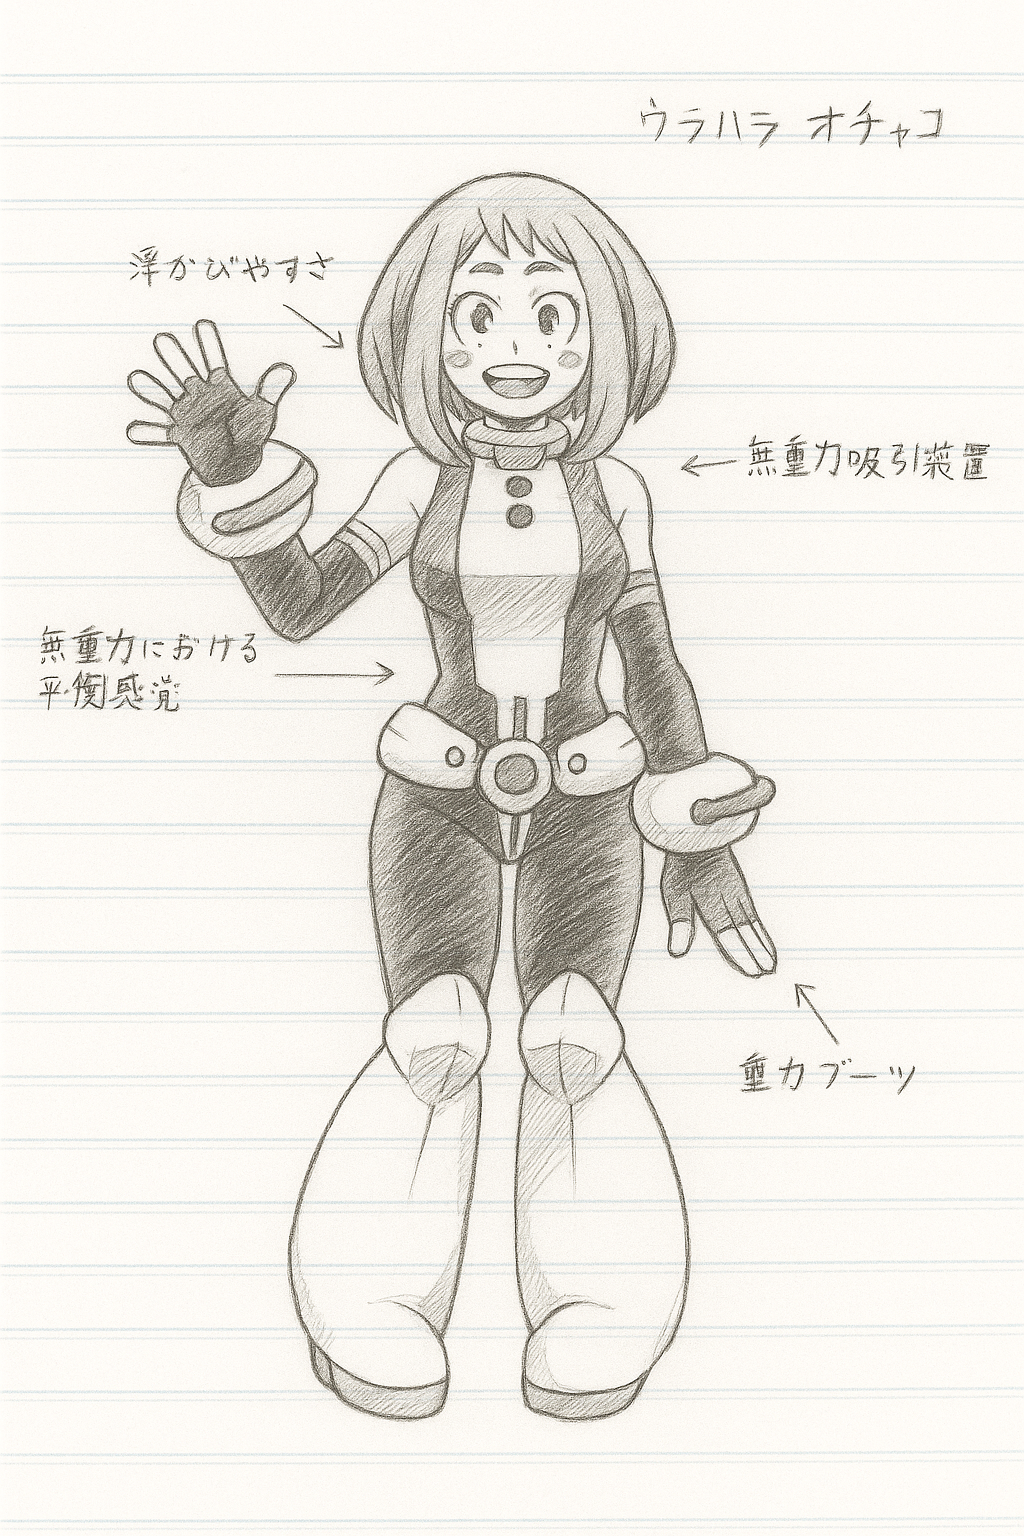 ウラハラ オチャコ
浮かびやすさ
無重力吸引装置
無重力における
平衡感覚
重力ブーツ